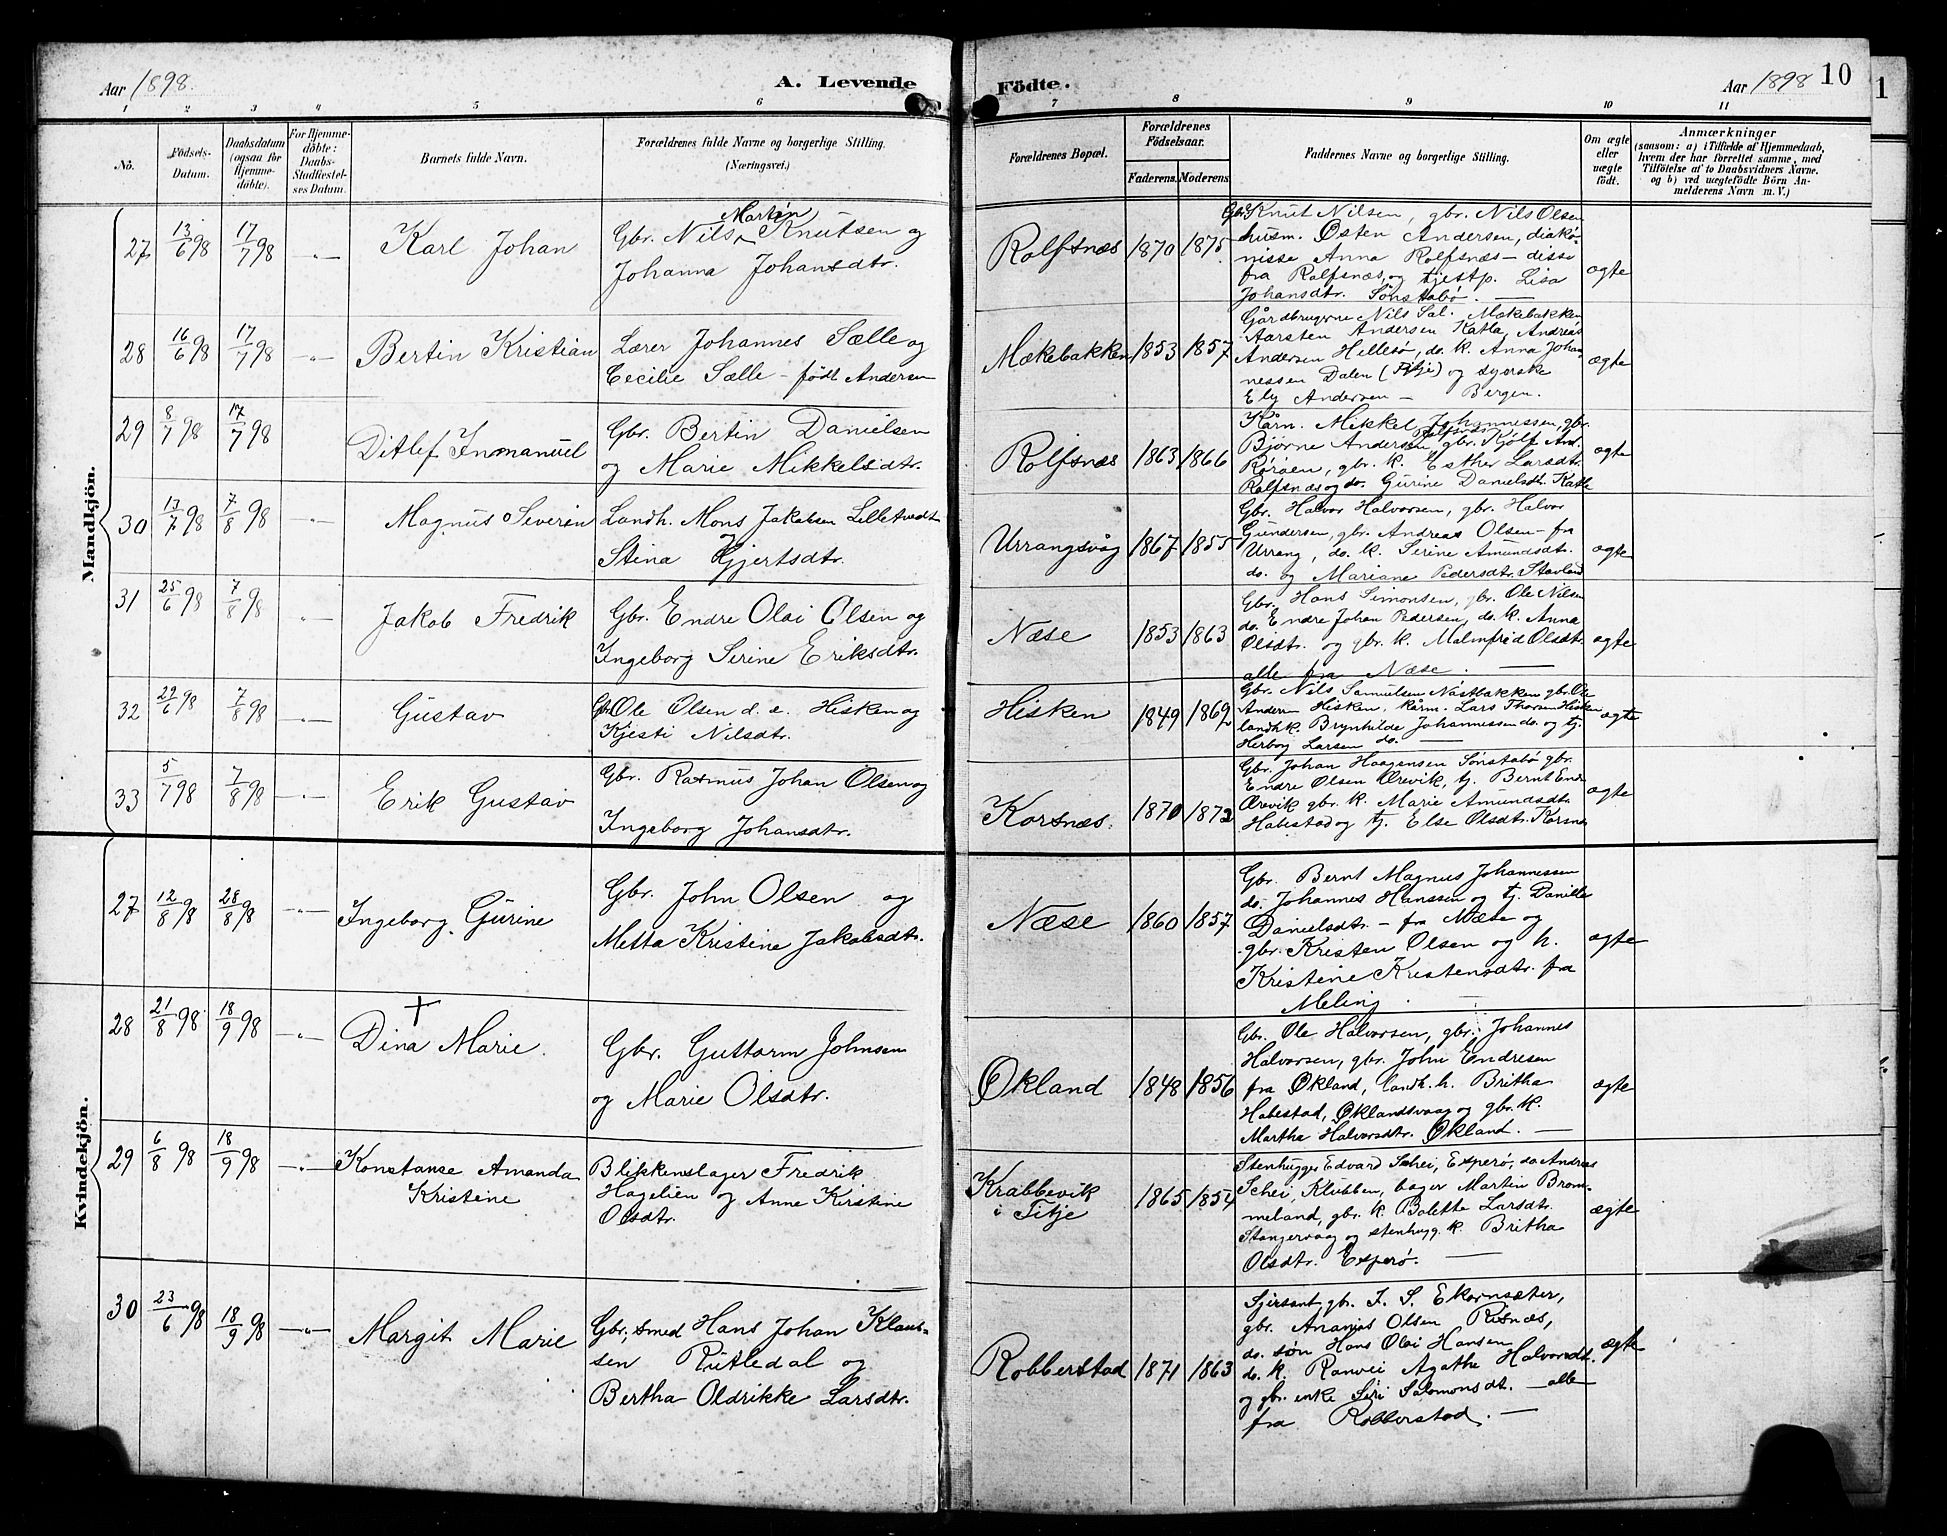 Aar 1898.
A. Levende
1 2 3 4 5 6
No.
Födsels-Datum.
Daabsdatum (ogsaa for Hjemmedöbte).
For Hjemmedöbte: Daabs-Stadfæstelses Datum.
Barnets fulde Navn.
Forældrenes fulde Navne og borgerlige Stilling. (Næringsvei.)
Mandkjön.
27 13/6 98 17/7 98 -"- Karl Johan
Gbr. Nils Martin Knutsen og
Johanna Johansdtr.
28 16/6 98 17/7 98 -"- Bertin Kristian
Lærer Johannes Sælle og
Cecilie Sælle - födt Andersen
29 8/7 98 17/7 98 Ditlef Inmanuel
Gbr. Bertin Danielsen
og Marie Mikkelsdtr.
30 13/7 98 7/8 98 -"- Magnus Severin
Landh. Mons Jakobsen Lilletvedt
Stina Gjertsdtr.
31 25/6 98 7/8 98 -"- Jakob Fredrik
Gbr. Endre Olai Olsen og
Ingeborg Serine Eriksdtr.
32 29/6 98 7/8 98 -"- Gustav
Gbr. Ole Olsen d. e. Hisken og
Kjesti Nilsdtr.
33 5/7 98 7/8 98 -"- Erik Gustav
Gbr. Rasmus Johan Olsen og
Ingeborg Johansdtr.
Kvindekjön.
27 12/8 98 28/8 98 -"- Ingeborg Gurine
Gbr. John Olsen og
Metta Kristine Jakobsdtr.
28 21/8 98 18/9 98 -"- + Dina Marie.
Gbr. Guttorm Johnsen
og Marie Olsdtr.
29 6/8 98 18/9 98 -"- Konstanse Amanda
Kristine
Blikkenslager Fredrik
Hagelien og Anne Kirstine
Olsdtr.
30 23/6 98 18/9 98 -"- Margit Marie
Gbr., smed Hans Johan Klaus-
sen Rutledal og
Bertha Oldrikke Larsdtr.
Födte.
Aar 1898 10
7 8 9 10 11
Forældrenes Bopæl.
Forældrenes Födselsaar.
Faderens. Moderens
Faddernes Navne og borgerlige Stilling.
Om ægte eller uægte födt.
Anmærkninger
(saasom: a) i Tilfælde af Hjemmedaab, hvem der har forrettet samme, med Tilföielse af to Daabsvidners Navne. og b) ved uægtefödte Börn Anmelderens Navn m. V.)
Rolfsnæs 1870 1875
Gbr. Knut Nilsen, gbr. Nils Olsen
husm. Østen Andersen, diakø-
nisse Anna Rolfsnæs - disse
fra Rolfsnæs, og tjestp. Lisa
Johansdtr. Sønstabø. -
ægte
Mækebakken 1853 1857
Gårdbrugerne Nils Sal. Mækebakken
Aarsten Andersen Katla, Andreas
Andersen Hillesø, do. k. Anna Johan
nessen Dalen (Fitje) og syerske
Ely Andersen - Bergen.
ægte
Rolfsnæs 1863 1866
Kårm. Mikkel Johannessen, gbr.
Bjørne Andersen Rolfsnæs gbr. Kjølf And.
Rørøen, gbr. k. Esther Larsdtr.
Rolfsnæs og do. Gurine Danielsdtr. Katle
ægte
Urrangsvåg 1867 1855
Gbr. Halvor Halvorsen, gbr. Halvor
Gundersen, gbr. Andreas Olsen - fra
Urrang, do. k. Serine Amundsdtr.
do. og Mariane Pedersdtr. Stavland
ægte
Næse 1853 1863
Gbr. Hans Simonsen, gbr. Ole Nilsen
do. Endre Johan Pedersen, do. k. Anna
Olsdtr. og gbr. k. Malmfrid Olsdtr.
alle fra Næse. -
ægte
Hisken 1849 1869
Gbr. Nils Samuelsen Nåstbakken gbr. Ole
Andersen Hisken, kårm. Lars Thorsen Hisken
landh.k. Brynhilde Johannessen do. og tj.
Herborg Larsen do. -
ægte
Korsnæs. 1870 1872
Gbr. Johan Haagensen Sønstabø gbr.
Endre Olsen Ørevik, tj. Bernt End.
Ørevik gbr. k. Marie Amundsdtr.
Habestad og tj. Else Olsdtr. Korsnæs
ægte
Næse 1860 1857
Gbr. Bernt Magnus Johannessen
do. Johannes Hanssen og tj. Danille
Danielsdtr. - fra Næse og
gbr. Kristen Olsen og h.
Kristine Kristensdtr. fra
Meling. -
ægte
Økland 1848 1856
Gbr. Ole Halvorsen, gbr. Johannes
Halvorsen, gbr. John Endresen
fra Økland, landh. h. Britha
Habestad, Øklandsvaag og gbr. k.
Martha Halvorsdtr. Økland. -
ægte
Krabbevik
i Fitje 1865 1854
Stenhugger Edvard Schei, Esperø, do Andreas
Schei, Klubben, bager Martin Brom-
meland, gbr. k. Bolette Larsdtr.
Stangervaag og stenhugg. k. Britha
Olsdtr. Esperø. -
ægte
Robberstad 1871 1863
Sjersant gbr. I. S. Ekornsæter,
gbr. Ananias Olsen Risnæs,
do. søn Hans Olai Hansen
do. k. Ranvei Agathe Halvorsdtr.
og gbr. enke Siri Salomonsdt. - alle
fra Robberstad. -
ægte